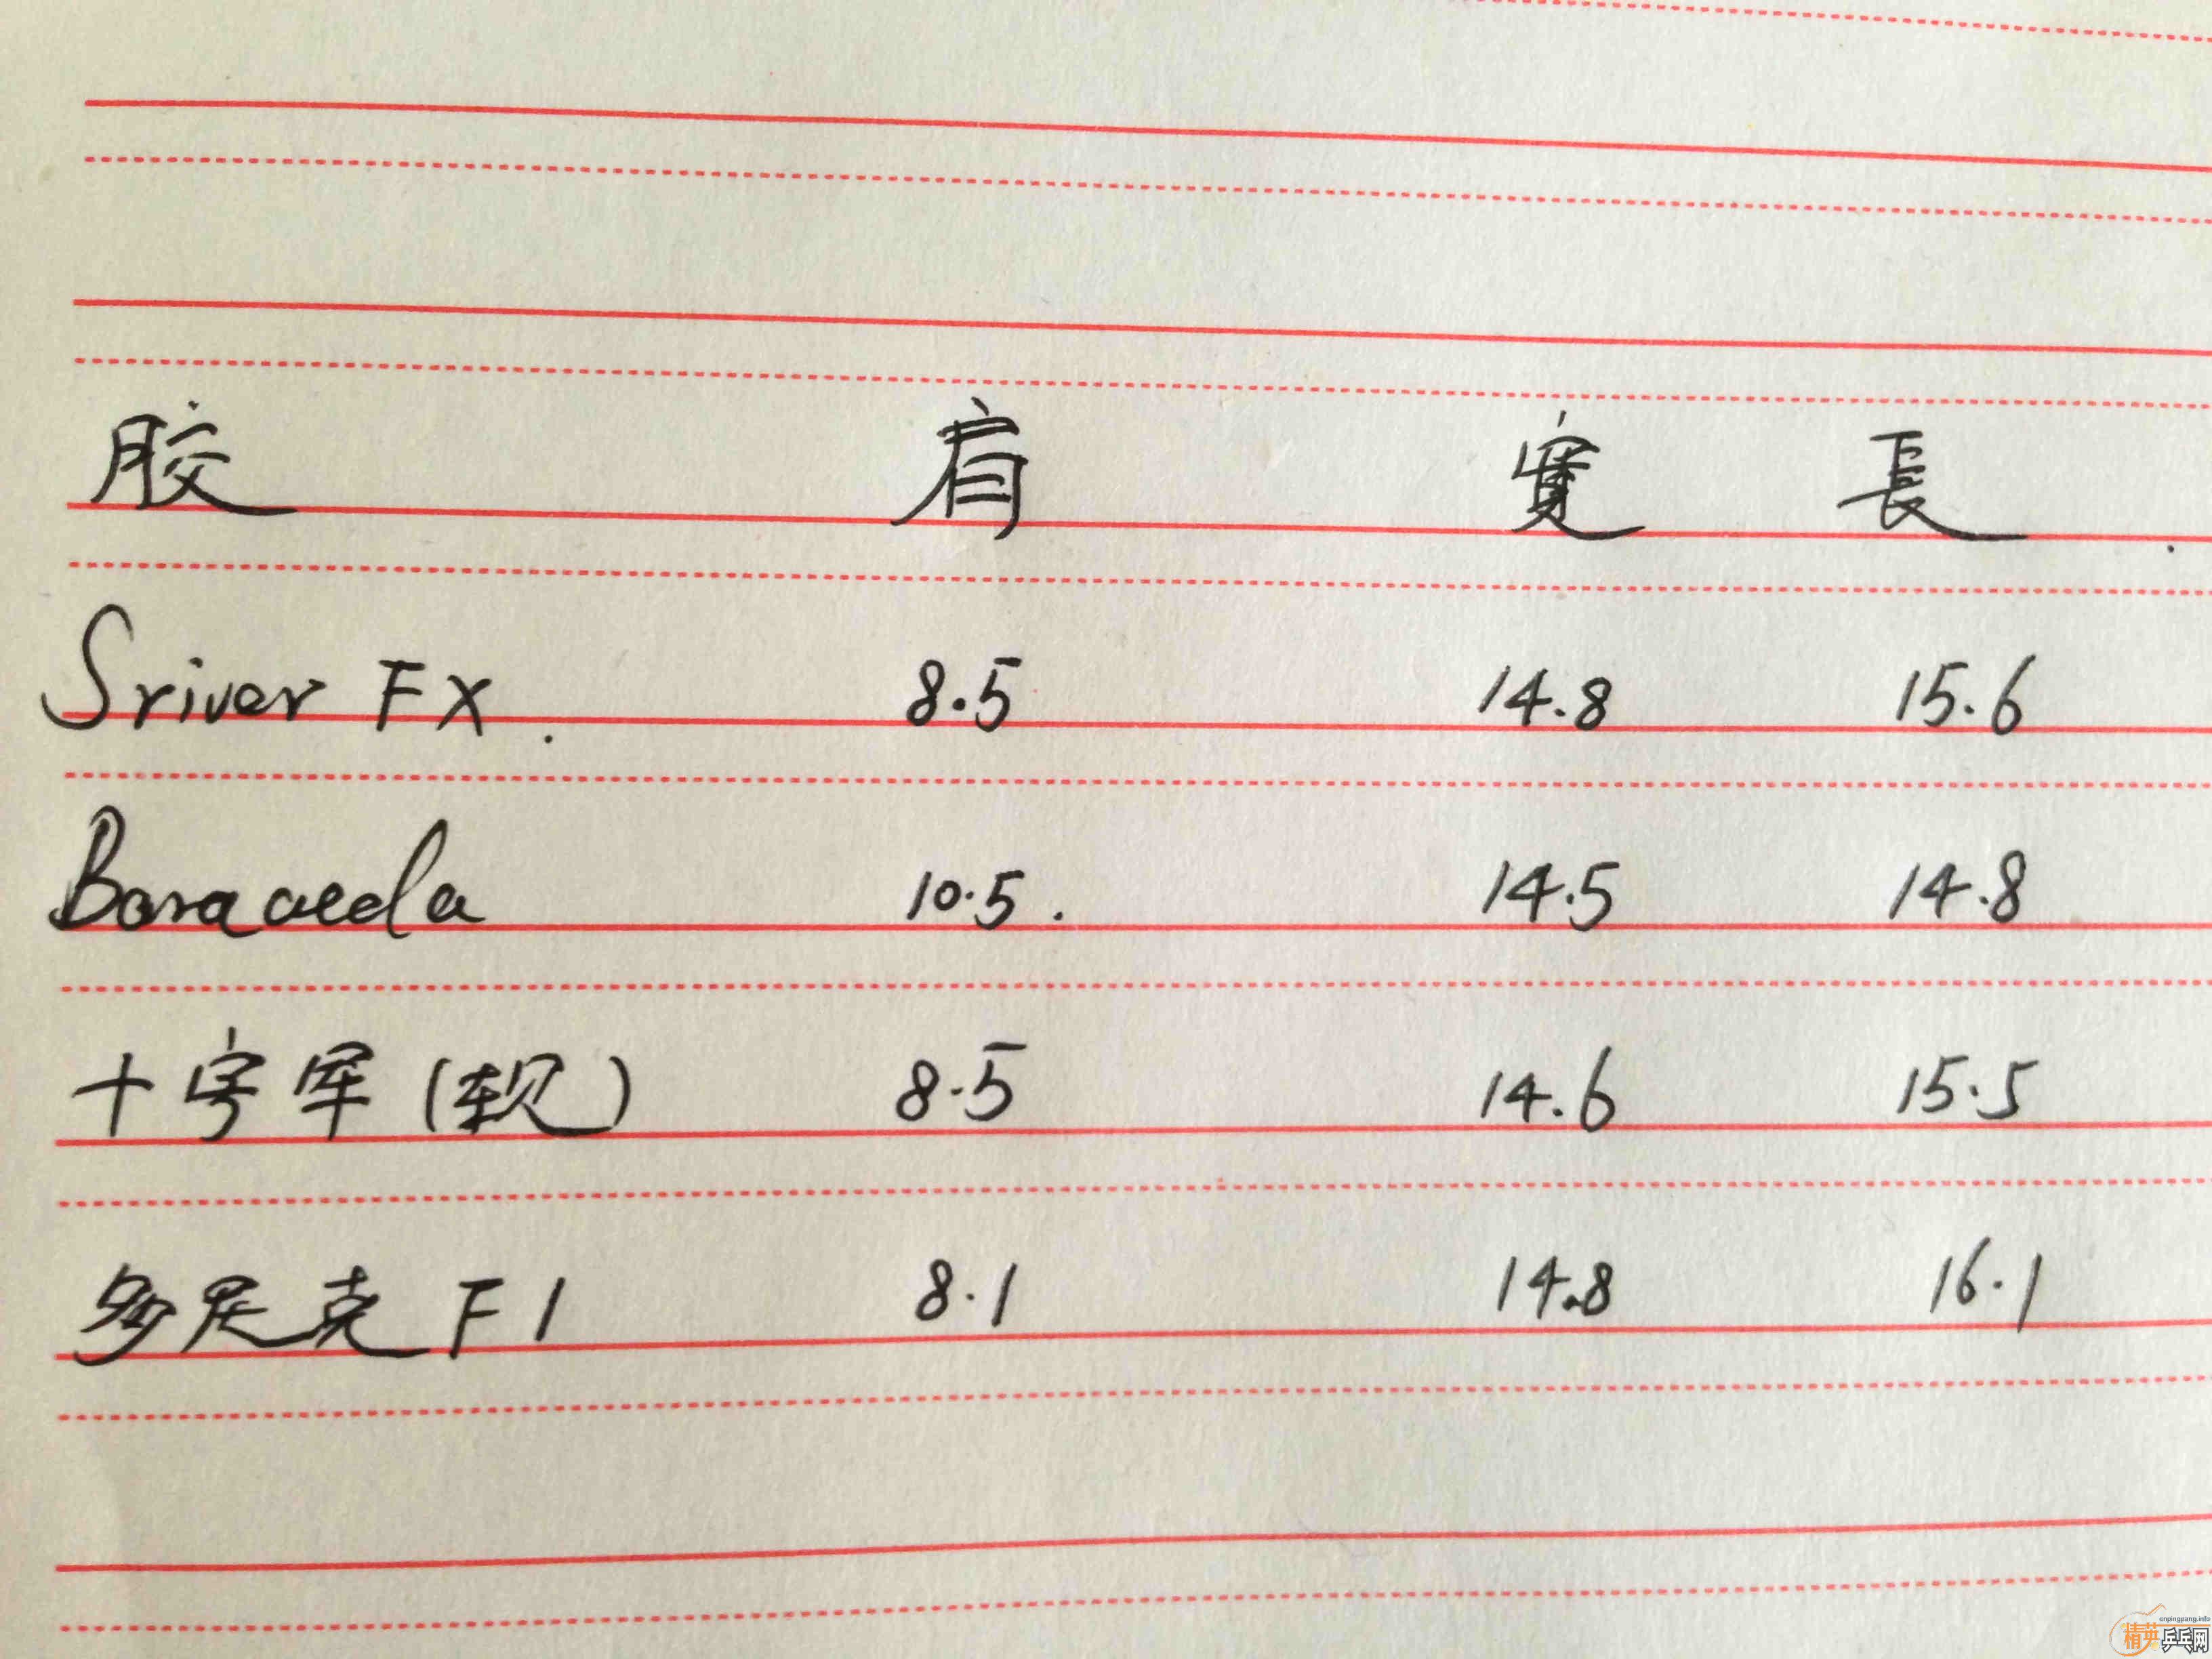 胶 肩 寬 長
Sriver FX. 8.5 14.8 15.6
Baracuda 10.5. 14.5 14.8
十字军(软) 8.5 14.6 15.5
多尼克 F1 8.1 14.8 16.1
cnpingpang.info
精英乒乓网